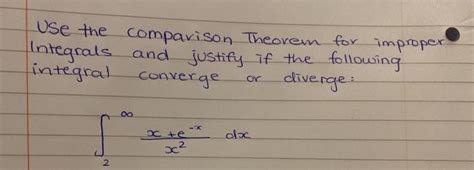 Use the comparison Theorem for improper
Integrals and justify if the following
integral converge or diverge:
∫₂^∞ (x + e^(-x)) / x² dx